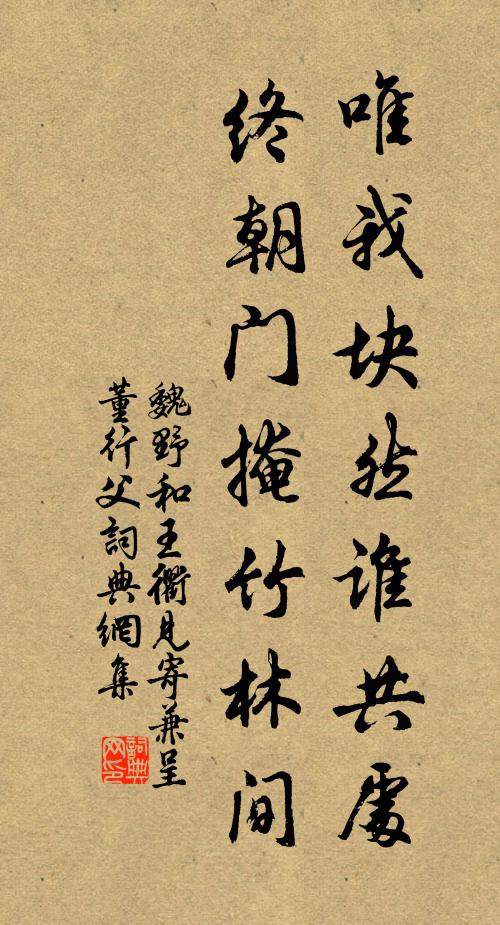 唯我块然谁共處
终朝门掩竹林间
魏野和王衢見寄兼呈
董行父詞典網集
詞典网印